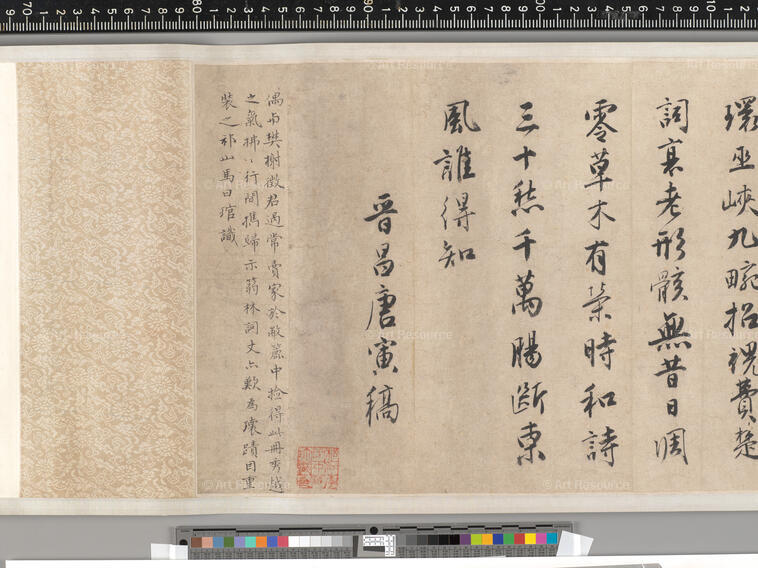 環巫峽九畹招視費楚
詞哀老形骸無昔日凋
零草木有榮時和詩
三十愁千萬腸斷東
風誰得知
晉昌唐寅稿
偶与樊榭徵君過常賣家於敝簏中撿得此冊秀越
之氣拂〻行間攜歸示蒻林詞丈亦歎為瓌蹟因重
裝之祁山馬曰琯識
© Art Resource
© Art Resource
© Art Resource
© Art Resource
© Art Resource
© Art Resource